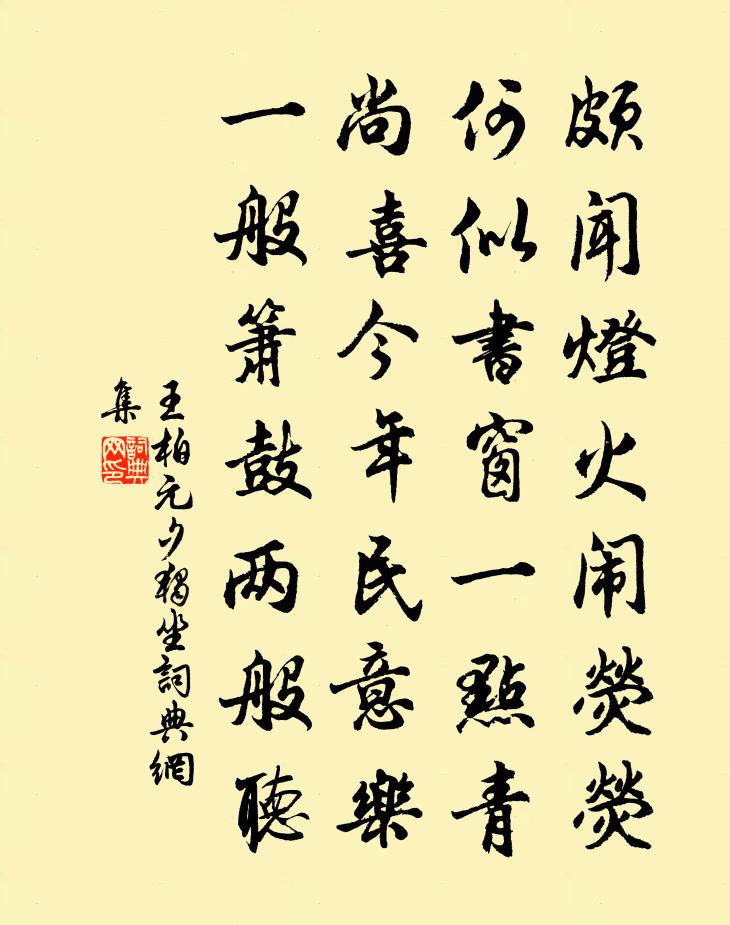 頗闻燈火闹熒熒
何似書窗一點青
尚喜今年民意樂
一般簫鼓两般聽
王柏元夕獨坐詞典網
集
詞典网印